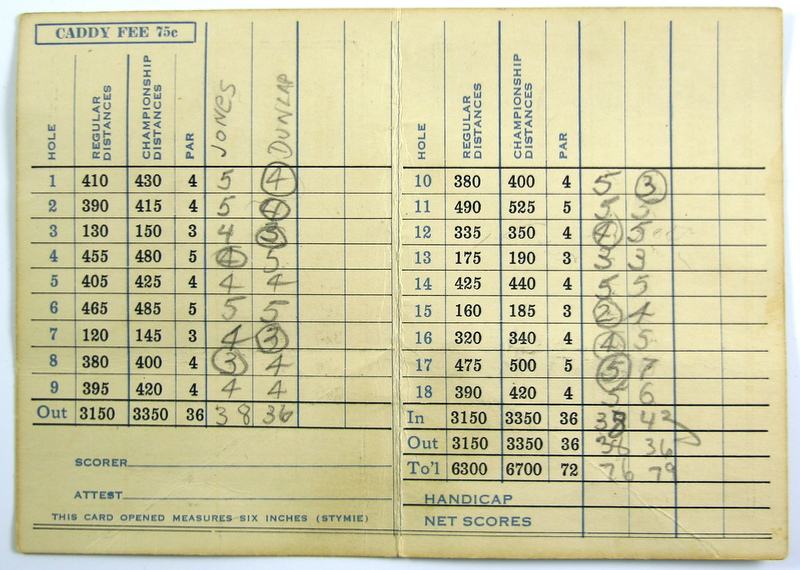 CADDY FEE 75c
HOLE REGULAR DISTANCES CHAMPIONSHIP DISTANCES PAR JONES DUNLAP
1 410 430 4 5 4
2 390 415 4 5 4
3 130 150 3 4 3
4 455 480 5 4 5
5 405 425 4 4 4
6 465 485 5 5 5
7 120 145 3 4 3
8 380 400 4 3 4
9 395 420 4 4 4
Out 3150 3350 36 38 36
SCORER
ATTEST
THIS CARD OPENED MEASURES SIX INCHES (STYMIE)
HOLE REGULAR DISTANCES CHAMPIONSHIP DISTANCES PAR
10 380 400 4 5 3
11 490 525 5 5 5
12 335 350 4 4 5
13 175 190 3 3 3
14 425 440 4 5 5
15 160 185 3 2 4
16 320 340 4 4 5
17 475 500 5 5 7
18 390 420 4 5 6
In 3150 3350 36 38
Out 3150 3350 36 38 36
To'l 6300 6700 72 76 79
HANDICAP
NET SCORES